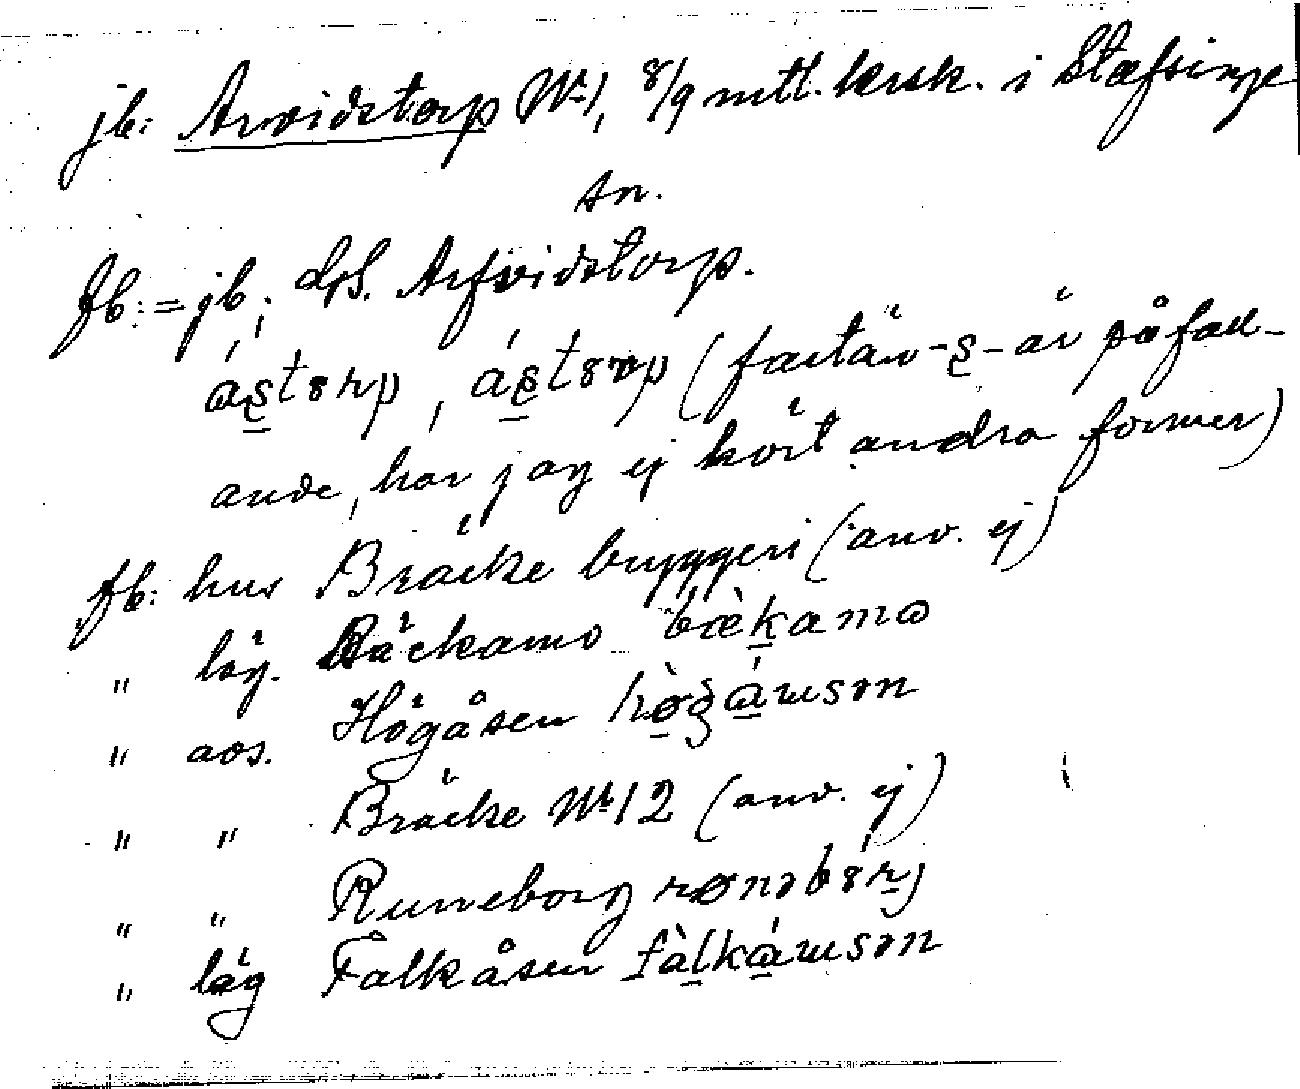 jb: Arvidstorp Nr 1, 8/9 mtl. krsk. i Stafsinge
sn.
fb: = jb; GS. Arfvidstorp.
ás̱tɵrp, ás̱tɵrp (förlän -s- är påfall-
ande, har jag ej hört andra former)
fb: hus Bräcke bryggeri (anv. ej)
" läg. Bäckamo bæ̀ḵama
" avs. Högåsen
" " Bräcke Nr 12 (anv. ej)
" " Runeborg
" läg Falkåsen